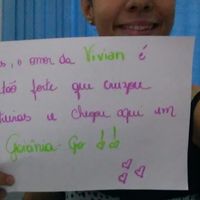 s, o amor da Vivian é
tão forte que cruzou
e chegou aqui em
Goiânia - Go !!